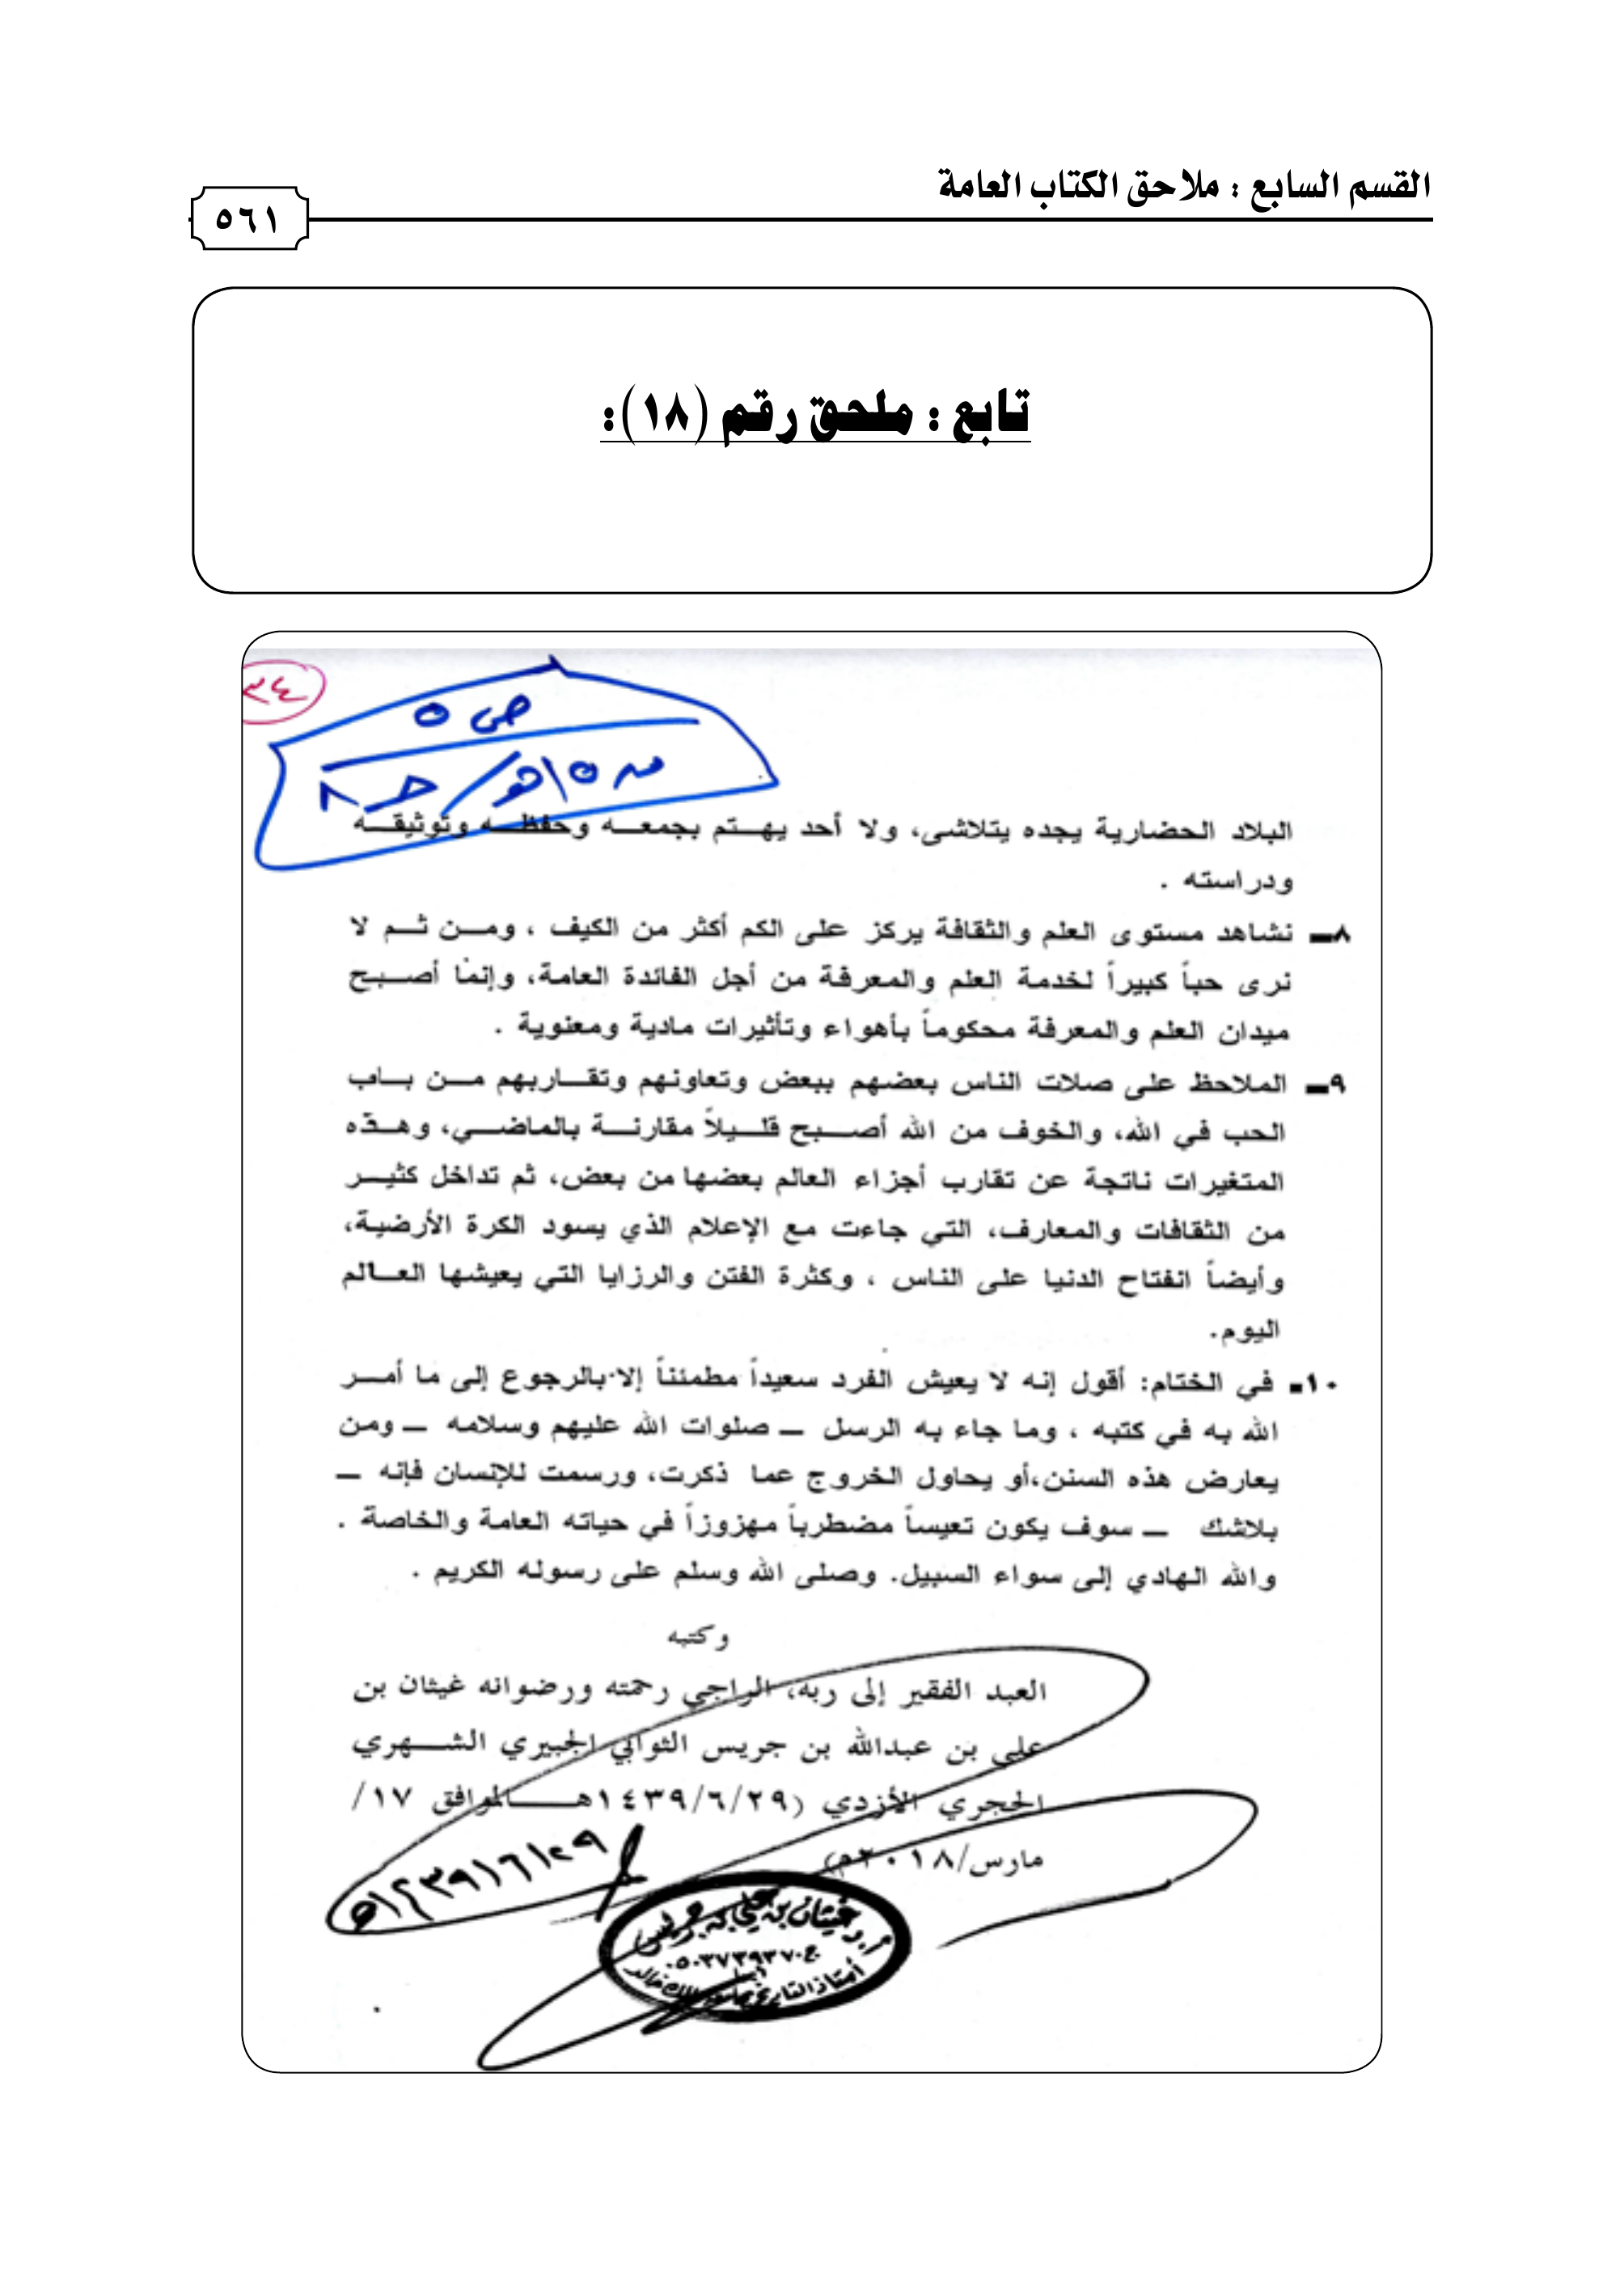 القسم السابع : ملاحق الكتاب العامة
٥٦١
تابع : ملحق رقم (١٨):
٣٤
ص ٥
البلاد الحضارية يجده يتلاشى، ولا أحد يهتم بجمعه وحفظه وتوثيقه
ودراسته .
٨ـ نشاهد مستوى العلم والثقافة يركز على الكم أكثر من الكيف ، ومن ثم لا
نرى حباً كبيراً لخدمة العلم والمعرفة من أجل الفائدة العامة، وإنما أصبح
ميدان العلم والمعرفة محكوماً بأهواء وتأثيرات مادية ومعنوية .
٩ـ الملاحظ على صلات الناس بعضهم ببعض وتعاونهم وتقاربهم من باب
الحب في الله، والخوف من الله أصبح قليلاً مقارنة بالماضي، وهذه
المتغيرات ناتجة عن تقارب أجزاء العالم بعضها من بعض، ثم تداخل كثير
من الثقافات والمعارف، التي جاءت مع الإعلام الذي يسود الكرة الأرضية،
وأيضاً انفتاح الدنيا على الناس ، وكثرة الفتن والرزايا التي يعيشها العالم
اليوم.
١٠ـ في الختام: أقول إنه لا يعيش الفرد سعيداً مطمئناً إلا بالرجوع إلى ما أمر
الله به في كتبه ، وما جاء به الرسل ــ صلوات الله عليهم وسلامه ــ ومن
يعارض هذه السنن،أو يحاول الخروج عما ذكرت، ورسمت للإنسان فإنه ــ
بلاشك ــ سوف يكون تعيساً مضطرباً مهزوزاً في حياته العامة والخاصة .
والله الهادي إلى سواء السبيل. وصلى الله وسلم على رسوله الكريم .
وكتبه
العبد الفقير إلى ربه، الراجي رحمته ورضوانه غيثان بن
علي بن عبدالله بن جريس الثوابي الجبيري الشهري
الحجري الأزدي (١٤٣٩/٦/٢٩هـ الموافق ١٧/
مارس/٢٠١٨م)
١٤٣٩/٦/٢٩هـ
أ.د غيثان بن علي بن جريس
أستاذ التاريخ بجامعة الملك خالد